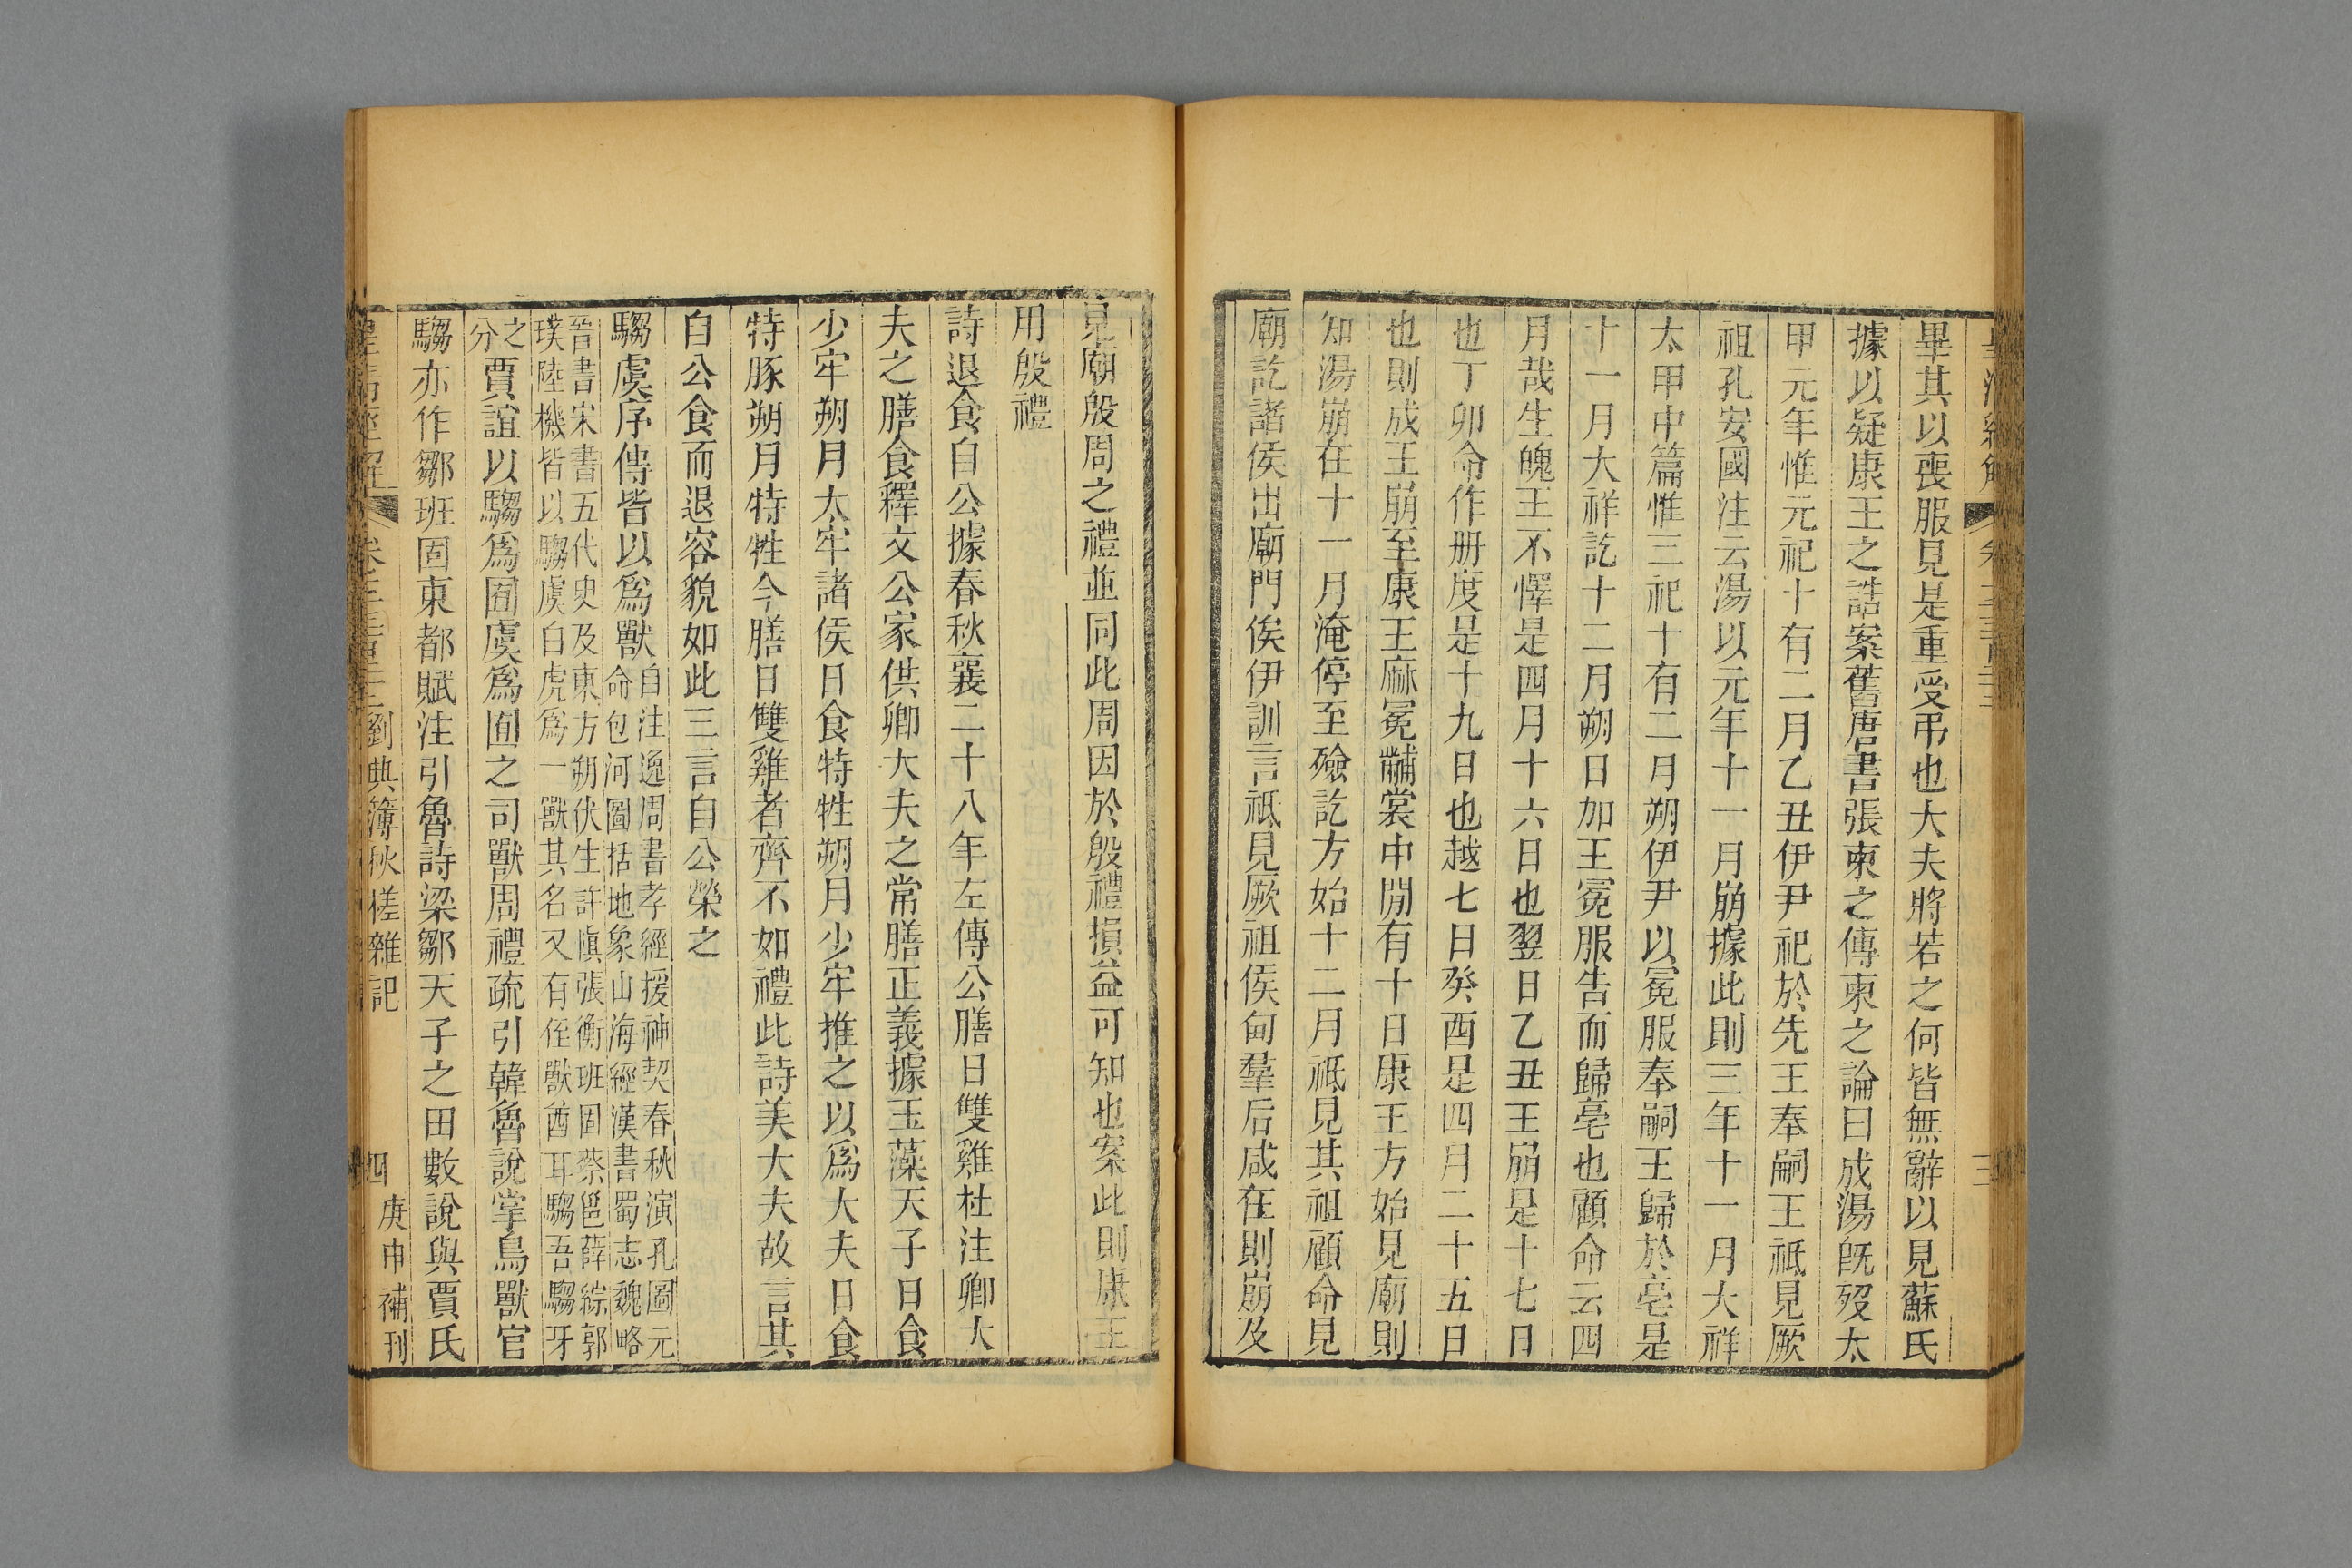 畢其以喪服見是重受弔也大夫將若之何皆無辭以見蘇氏
據以疑康王之誥案舊唐書張柬之傳柬之論曰成湯旣歿太
甲元年惟元祀十有二月乙丑伊尹祀於先王奉嗣王祗見厥
祖孔安國注云湯以元年十一月崩據此則三年十一月大祥
太甲中篇惟三祀十有二月朔伊尹以冕服奉嗣王歸於亳是
十一月大祥訖十二月朔日加王冕服告而歸亳也顧命云四
月哉生魄王不懌是四月十六日也翌日乙丑王崩是十七日
也丁卯命作冊度是十九日也越七日癸酉是四月二十五日
也則成王崩至康王麻冕黼裳中閒有十日康王方始見廟則
知湯崩在十一月淹停至殮訖方始十二月祗見其祖顧命見
廟訖諸侯出廟門俟伊訓言祗見厥祖侯甸羣后咸在則崩及
見廟殷周之禮並同此周因於殷禮損益可知也案此則康王
用殷禮
詩退食自公據春秋襄二十八年左傳公膳日雙雞杜注卿大
夫之膳食釋文公家供卿大夫之常膳正義據玉藻天子日食
少牢朔月太牢諸侯日食特牲朔月少牢推之以爲大夫日食
特豚朔月特牲今膳日雙雞者齊不如禮此詩美大夫故言其
自公食而退容貌如此三言自公榮之
騶虞序傳皆以爲獸自注逸周書孝經援神契春秋演孔圖元
命包河圖括地象山海經漢書蜀志魏略
晉書宋書五代史及東方朔伏生許愼張衡班固蔡邕薛綜郭
璞陸機皆以騶虞白虎爲一獸其名又有侄獸酋耳騶吾騶牙
之
分賈誼以騶爲囿虞爲囿之司獸周禮疏引韓魯說掌鳥獸官
騶亦作鄒班固東都賦注引魯詩梁鄒天子之田數說與賈氏
皇清經解
劉典簿秋槎雜記
四
庚申補刊